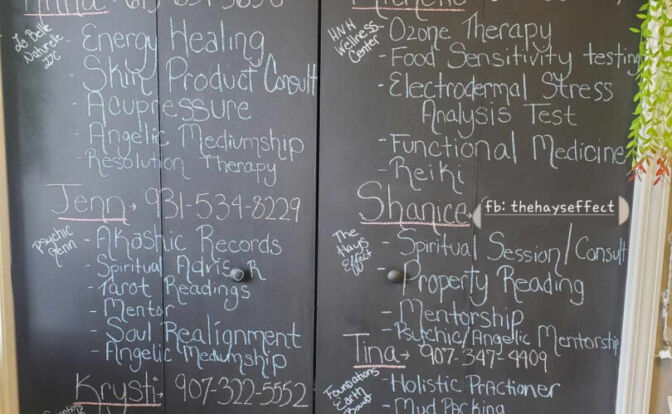 La Belle
Naturelle
- Energy Healing
- Skin Product Consult
- Acupressure
- Angelic Mediumship
- Resolution Therapy
Jenn → 931-534-8229
Psychic
Jenn
- Akashic Records
- Spiritual Advisor
- Tarot Readings
- Mentor
- Soul Realignment
- Angelic Mediumship
Krysti → 907-322-5552
HNH
Wellness
Center
- Ozone Therapy
- Food Sensitivity testing
- Electrodermal Stress
Analysis Test
- Functional Medicine
- Reiki
Shanice → fb: thehayseffect
The
Hays
Effect
- Spiritual Session/Consult
- Property Reading
- Mentorship
- Psychic/Angelic Mentorship
Tina → 907-347-4409
Foundations
Earth
- Holistic Practioner
- Mud Packing